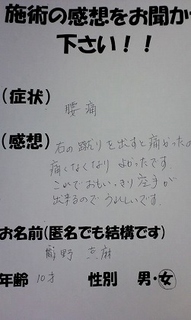 施術の感想をお聞か
下さい！！
(症状)
腰痛
(感想)
右の蹴りを出すと痛かったの
痛くなくなり よかったです。
これでおもいっきり空手が
出来るのでうれしいです。
お名前(匿名でも結構です)
年齢 10才 性別 男・女